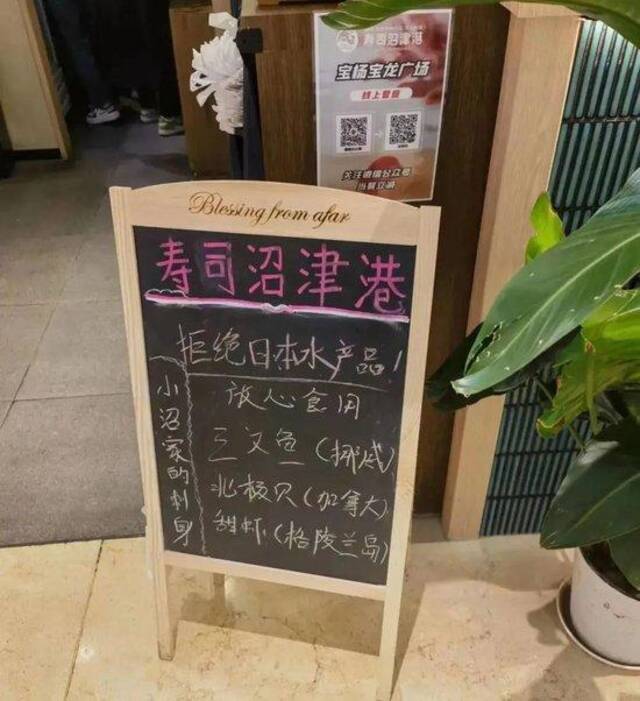 寿司沼津港
宝杨宝龙广场
线上登皇
关注微信公众号
当餐立减
Blessing from afar
寿司沼津港
拒绝日本水产品！
小沼家的刺身
放心食用
三文鱼（挪威）
北极贝（加拿大）
甜虾（格陵兰岛）